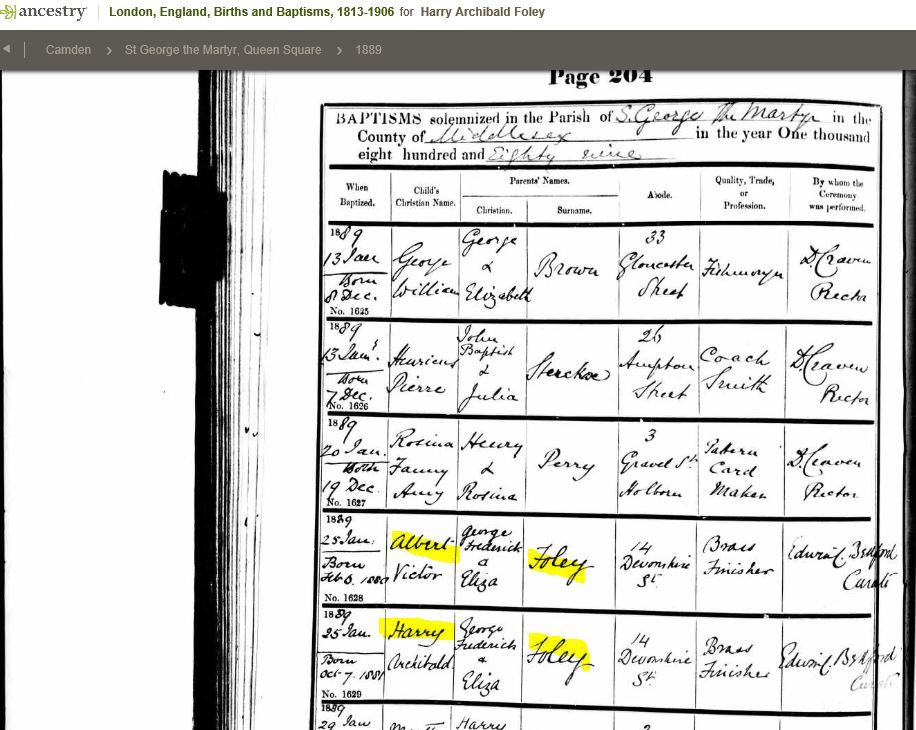 ancestry London, England, Births and Baptisms, 1813-1906 for Harry Archibald Foley
Camden > St George the Martyr, Queen Square > 1889
Page 204
BAPTISMS solemnized in the Parish of S. George the Martyr in the
County of Middlesex in the year One thousand
eight hundred and Eighty nine
When Baptized. Child's Christian Name. Parents' Names. Christian. Surname. Abode. Quality, Trade, or Profession. By whom the Ceremony was performed.
1889
13 Jan
Born
8 Dec.
No. 1625
George
William
George
&
Elizabeth
Brown
33
Gloucester
Street
Fishmonger
D. Craven
Rector
1889
13 Jany
Born
7 Dec.
No. 1626
Henricus
Pierre
John
Baptist
&
Julia
Sterckoe
26
Ampton
Street
Coach
Smith
D. Craven
Rector
1889
20 Jan.
Born
19 Dec.
No. 1627
Rosina
Fanny
Amy
Henry
&
Rosina
Perry
3
Gravel St
Holborn
Pattern
Card
Maker
D. Craven
Rector
1889
25 Jan.
Born
Feb 6.
No. 1628
Albert
Victor
George
Frederick
&
Eliza
Foley
14
Devonshire
St.
Brass
Finisher
Edwin C. Bedford
Curate
1889
25 Jan.
Born
Oct 7.
No. 1629
Harry
Archibald
George
Frederick
&
Eliza
Foley
14
Devonshire
St.
Brass
Finisher
Edwin C. Bedford
Curate
1889
29 Jan
Harry